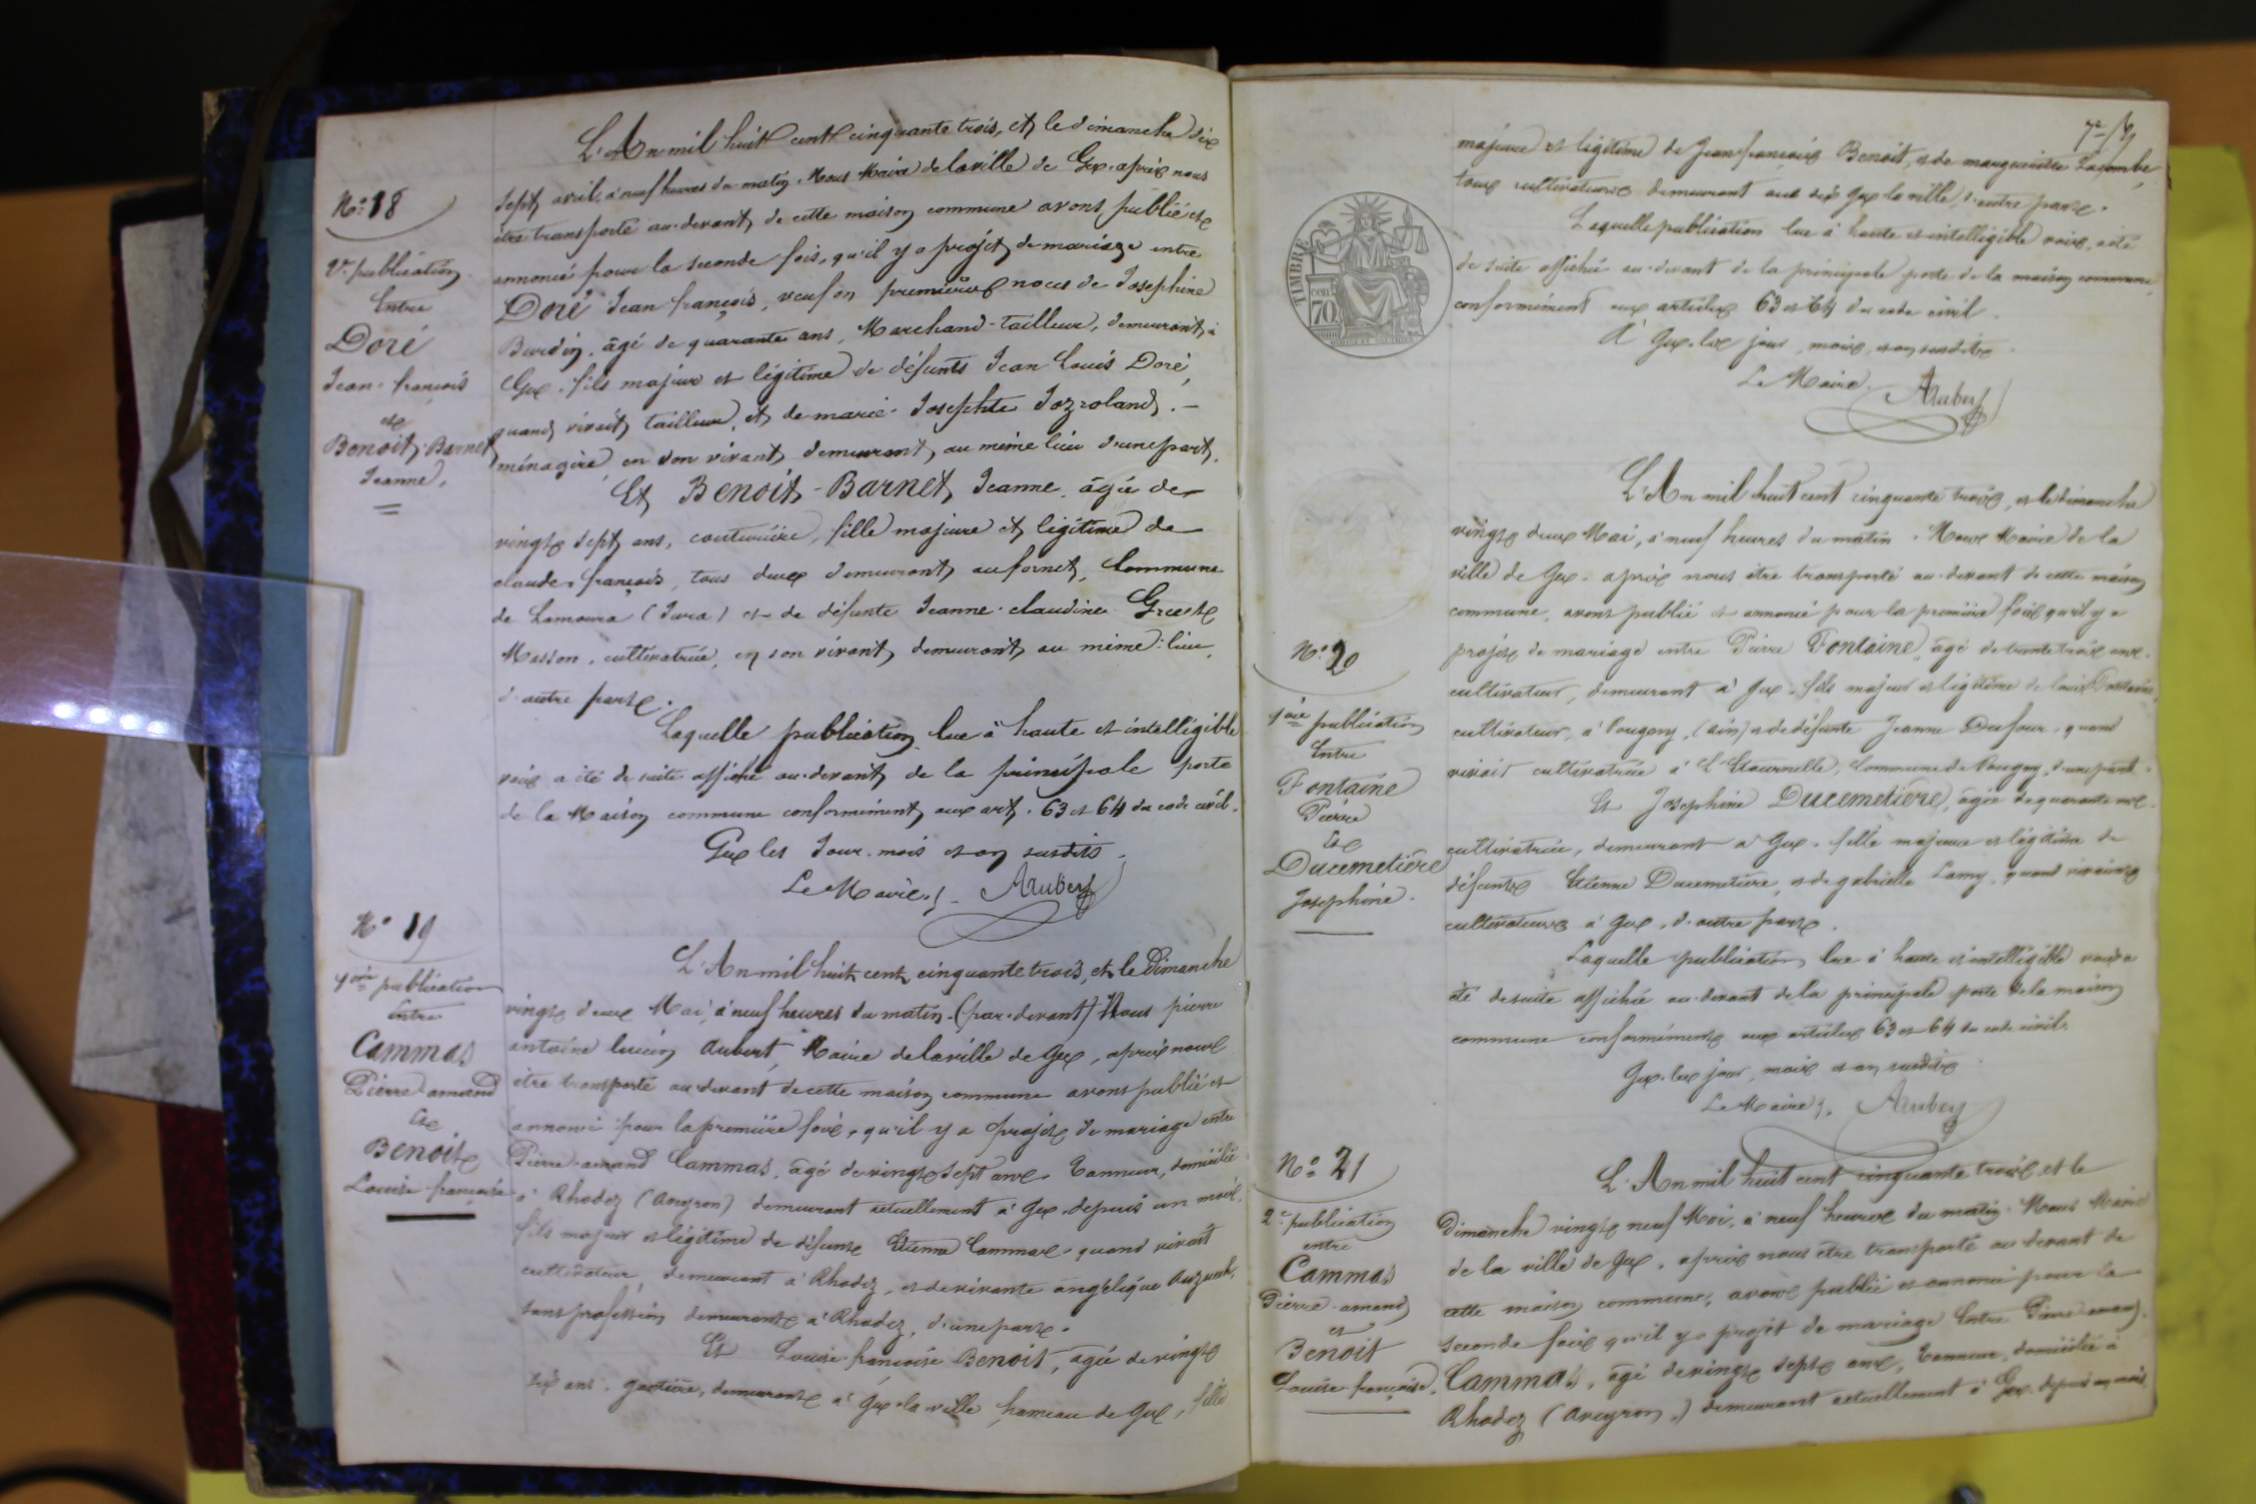 N.° 18
2.e publication
Entre
Doré
Jean-françois
et
Benoit-Barnet
Jeanne.
L'An mil huit cent cinquante trois, et le dimanche dix
sept avril, à neuf heures du matin. Nous Maire de la ville de Gex. après nous
être transporté au-devant de cette maison commune avons publié et
annoncé pour la seconde fois, qu'il y a projet de mariage entre
Doré Jean françois, veuf en premières noces de Josephine
Burdin, âgé de quarante ans, Marchand-tailleur, demeurant à
Gex. fils majeur et légitime de défunts Jean Louis Doré,
quand vivait tailleur, et de marie-Josephte Jozroland. -
ménagère en son vivant demeurant au même lieu d'une part.
Et Benoit-Barnet Jeanne. âgée de
vingt sept ans, couturière, fille majeure et légitime de
claude-françois, tous deux demeurant au fornet, Commune
de Lamoura (Jura) et de défunte Jeanne-claudine
Masson, cultivatrice, en son vivant demeurant au même lieu,
d'autre part.
Laquelle publication lue à haute et intelligible
voix a été de suite affiché au-devant de la principale porte
de la Maison commune conformément aux art. 63 et 64 du code civil.
Gex les Jour. mois et an susdits.
Le Maire. Aubert
N° 19
1ère publication
Entre
Cammas
Pierre-amand
Et
Benoit
Louise-françoise
L'An mil huit cent cinquante trois, et le Dimanche
vingt deux Mai, à neuf heures du matin. (par-devant) Nous pierre
antoine lucien Aubert, Maire de la ville de Gex, après nous
être transporté au-devant de cette maison commune avons publié et
annoncé pour la première fois, qu'il y a projet de mariage entre
Pierre-amand Cammas, âgé de vingt sept ans. Tanneur, domicilié
à Rhodez (Aveyron) demeurant actuellement à Gex. depuis un mois.
fils majeur et légitime de défunt Etienne Cammas. quand vivait
cultivateur, demeurant à Rhodez, et de vivante angélique
sans profession demeurante à Rhodez, d'une part.
Et Louise-françoise Benoit, âgée de vingt
six ans. demeurante à Gex-la-ville, hameau de Gex, fille
7e
majeure et légitime de Jean françois Benoit, et de marguerite Lacombe,
tous cultivateurs demeurant aud. dit Gex la ville, d'autre part.
Laquelle publication lue à haute et intelligible voix, a été
de suite affichée au-devant de la principale porte de la maison commune,
conformément aux articles 63 et 64 du code civil.
A Gex. les jour, mois, et an susdits.
Le Maire. Aubert
TIMBRE
70
N.° 20
1ère publication
Entre
Fontaine
Pierre
Et
Ducemetière
Josephine.
L'An mil huit cent cinquante trois, et le dimanche
vingt deux Mai, à neuf heures du matin. Nous Maire de la
ville de Gex. après nous être transporté au-devant de cette maison
commune, avons publié et annoncé pour la première fois qu'il y a
projet de mariage entre Pierre Fontaine, âgé de trente trois ans.
cultivateur, demeurant à Gex. fils majeur et légitime de Louis Fontaine,
cultivateur, à Pougny, (ain) et de défunte Jeanne Dufour, quand
vivait cultivatrice à Commune de Pougny, d'une part.
Et Josephine Ducemetière, âgée de quarante ans.
cultivatrice, demeurant à Gex. fille majeure et légitime de
défunts Etienne Ducemetière, et de gabrielle Lamy, quand vivaient
cultivateurs à Gex, d'autre part.
Laquelle publication lue à haute et intelligible voix a
été de suite affichée au-devant de la principale porte de la maison
commune conformément aux articles 63 et 64 du code civil.
Gex. les jour, mois et an susdits.
Le Maire. Aubert
N.° 21
2.e publication
entre
Cammas
Pierre-amand
et
Benoit
Louise-françoise.
L'An mil huit cent cinquante trois, et le
Dimanche vingt neuf Mai, à neuf heures du matin. Nous Maire
de la ville de Gex, après nous être transporté au devant de
cette maison commune, avons publié et annoncé pour la
seconde fois qu'il y a projet de mariage Entre Pierre-amand
Cammas, âgé de vingt sept ans, Tanneur, domicilié à
Rhodez (Aveyron,) demeurant actuellement à Gex. depuis un mois,